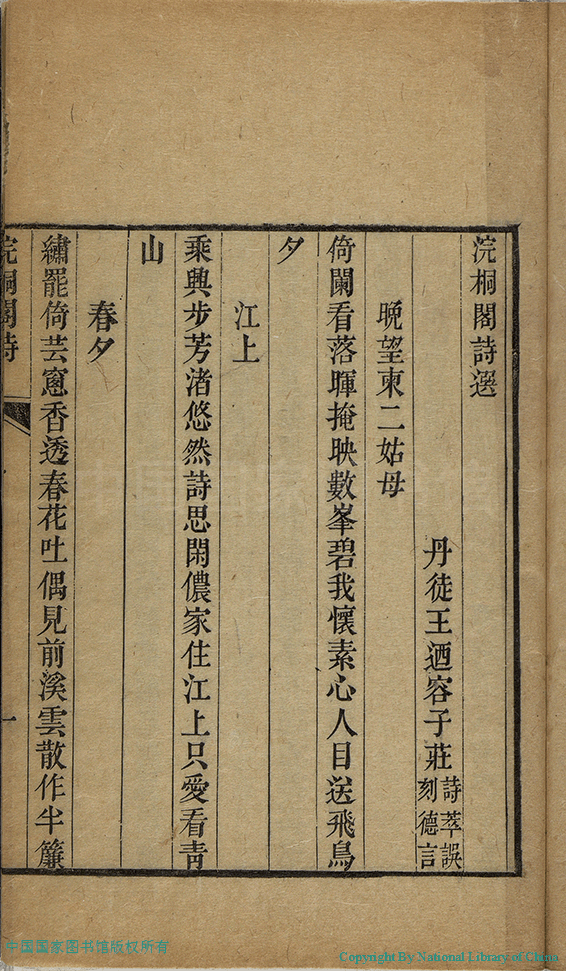 浣桐閣詩選
丹徒王迺容子莊詩萃誤刻德言
晚望柬二姑母
倚闌看落暉掩映數峯碧我懷素心人目送飛鳥
夕
江上
乘興步芳渚悠然詩思閑儂家住江上只愛看靑
山
春夕
繡罷倚芸窻香透春花吐偶見前溪雲散作半簾
浣桐閣詩
一
中国国家图书馆版权所有
Copyright By National Library of China